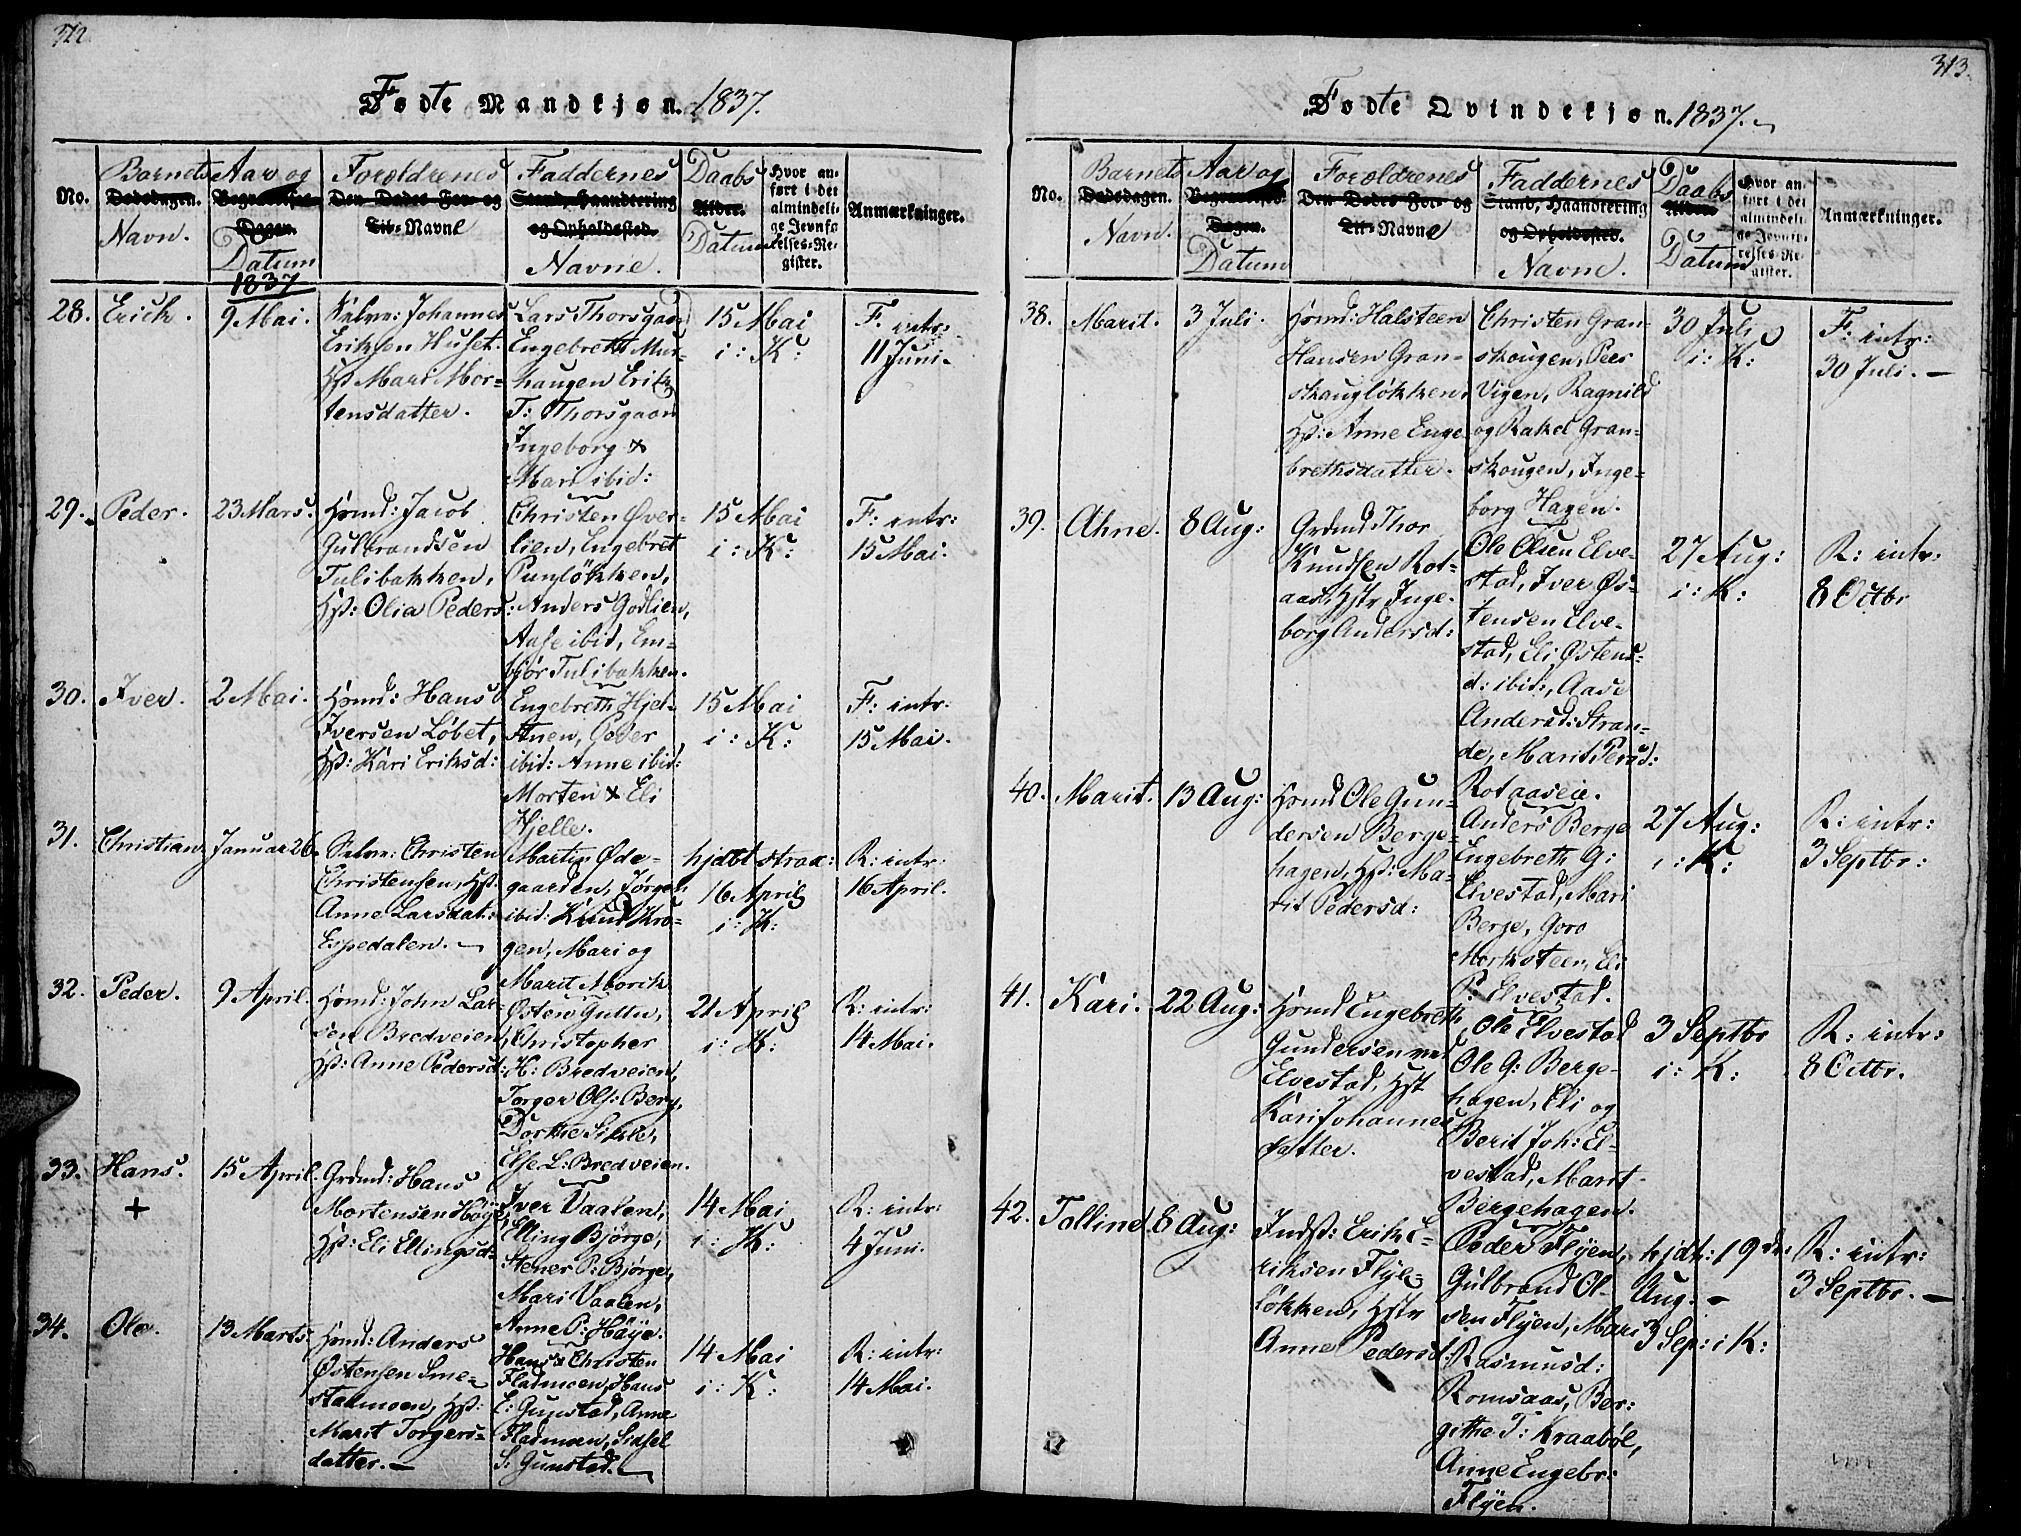 312.
Fødte Mandkjøn. 1837.
No.
Barnets
Dødsdagen.
Navn.
Aar og
Begravelses-
Dagen.
Datum
1837
Forældrenes
Den Dødes For- og
Til-Navne
Faddernes
Stand, Haandtering
og Opholdssted.
Navne.
Daabs
Alder.
Datum
Hvor an-
ført i det
almindeli-
ge Jevnfø-
relses-Re-
gister.
Anmærkninger.
28. Erich. 9 Mai.
Selvr: Johannes
Eriksen Huset.
Hst Mari Mor-
tensdatter.
Lars Thorsgaard
Engebreth Mur-
haugen Erik
T: Thorsgaard
Ingeborg &
Mari ibid:
15 Mai
i: K:
F. intr:
11 Juni.
29. Peder. 23 Mars.
Hsmd: Jacob
Gulbrandsen
Tulibakken,
Hst: Olia Peders:
Christen Øver-
lien, Engebret
Punløkken,
Anders Godlien,
Aase ibid, Em-
bjør Tulibakken.
15 Mai
i: K:
F: intr:
15 Mai.
30. Iver. 2 Mai.
Hsmd: Hans
Iversen Løbet,
Hst: Kari Eriksd:
Engebreth Hjel-
stuen, Peder
ibid: Anne ibid:
Morten & Eli
Hjelle.
15 Mai
i: K:
F: intr:
15 Mai.
31. Christian. Januar 26.
Selvr: Christen
Christensen, Hst:
Anne Larsdat:
Espedalen.
Martin Øde-
gaarden, Jørgen
ibid: Knud Kro-
gen, Mari og
Marit Morik
hjdbt strax:
16 April
i: K:
R: intr:
16 April.
32. Peder. 9 April.
Hsmd: John Lar-
sen Bredveien,
Hst: Anne Pedersd:
Østen Guttu,
Christopher
H: Bredveien,
Torger Ols: Berg,
Dorthe Sikle,
Else L: Bredveien.
21 April
i: K:
R: intr:
14 Mai.
33. Hans. 15 April.
+
Grdmd: Hans
Mortensen Høye,
Hst: Eli Ellingsd:
Iver Vaalen,
Elling Bjørge,
Stener P: Bjørge,
Mari Vaalen,
Anne P: Høye.
14 Mai
i: K:
R: intr:
4 Juni.
34. Ole. 13 Marts.
Hsmd: Anders
Østensen Sme-
stadmoen, Hst:
Marit Torgers-
datter.
Hans & Christen
Fladmoen, Hans
E: Gunstad, Anne
Fladmoen, Sidsel
S: Gunstad.
14 Mai
i: K:
R: intr:
14 Mai.
313.
Fødte Qvindekjøn. 1837.
No.
Barnets
Dødsdagen.
Navn.
Aar og
Begravelses-
Dagen.
Datum
Forældrenes
Den Dødes For- og
Til-Navne
Faddernes
Stand, Haandtering
og Opholdssted.
Navne.
Daabs
Alder.
Datum
Hvor an-
ført i det
almindeli-
ge Jevnfø-
relses-Re-
gister.
Anmærkninger.
38. Marit. 3 Juli.
Hsmd: Halsteen
Hansen Gran-
skougløkken,
Hst: Anne Enge-
brethsdatter.
Christen Gran-
skougen, Peer
Vigen, Ragnild
og Rakel Gran-
skougen, Inge-
borg Hagen.
30 Juli
i: K:
F: intr:
30 Juli.
39. Ahne. 8 Aug:
Grdmd Thor
Knudsen Rot-
aas, Hstr Inge-
borg Andersd:
Ole Olsen Elve-
stad, Iver Øs-
tensen Elve-
stad, Eli Østens-
d: ibid:, Aase
Andersd: Stran-
de, Marit Persd:
Rotaaseie.
27 Aug:
i: K:
R: intr:
8 Octbr
40. Marit. 13 Aug:
Hsmd Ole Gun-
dersen Berge-
hagen, Hst: Ma-
rit Pedersd:
Anders Berge
Engebreth G:
Elvestad, Mari
Berge, Goro
Morksteen, Eli
P: Elvestad.
27 Aug:
i: K:
R: intr:
3 Septbr:
41. Kari. 22 Aug:
Hsmd Engebreth
Gundersen ved
Elvestad, Hst
Kari Johannes
datter.
Ole Elvestad
Ole G: Berge-
hagen, Eli og
Berit Joh: El-
vestad, Marit
Bergehagen.
3 Septbr
i: K:
R: intr:
8 Octbr.
42. Tolline. 8 Aug:
Indst: Erik E-
riksen Flye-
løkken, Hstr
Anne Pedersd:
Peder Flyen,
Gulbrand Ol-
sen Flyen, Mari
Rasmusd:
Romsaas, Ber-
githe T: Kraabøl,
Anne Engebr:
Flyen.
hjdt: 19de
Aug: -
3 Sep: i K:
R: intr:
3 Septbr.